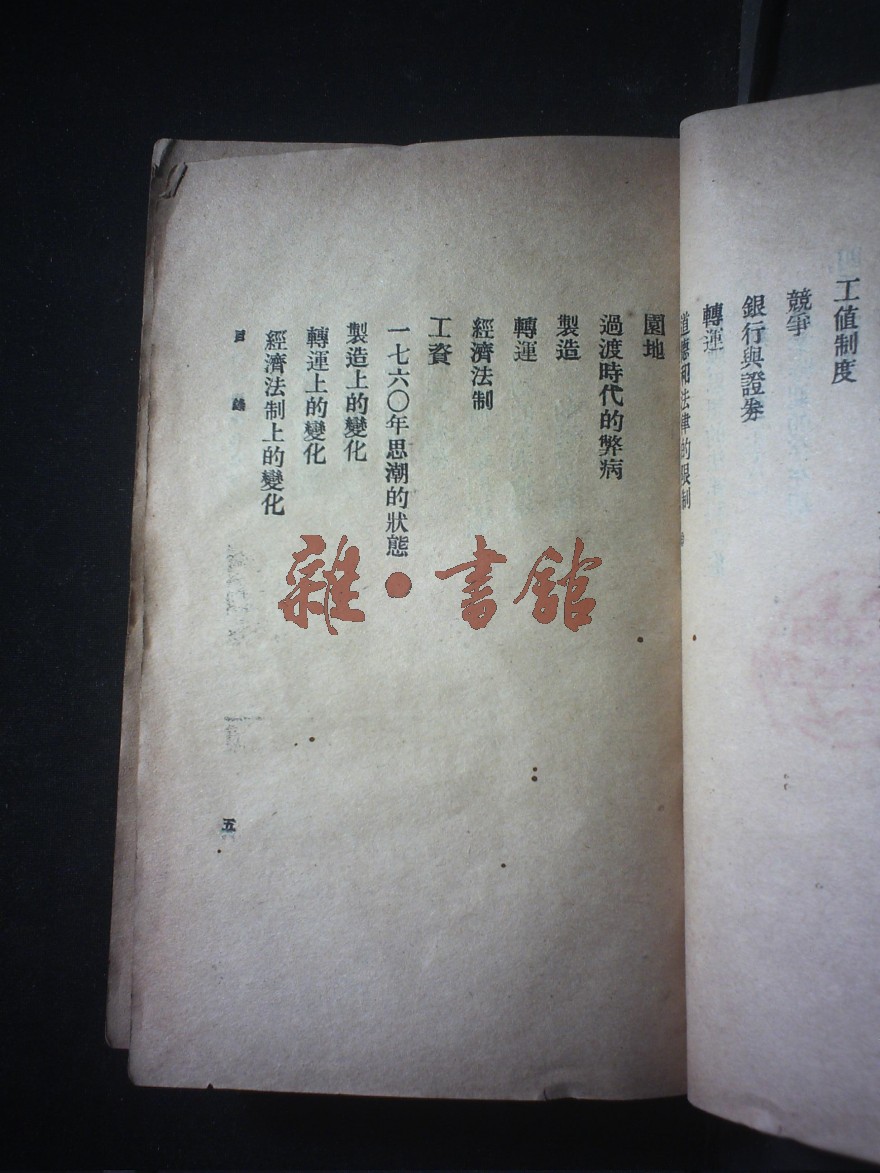 工值制度
競爭
銀行與證券
轉運
道德和法律的限制
園地
過渡時代的弊病
製造
轉運
經濟法制
工資
一七六〇年思潮的狀態
製造上的變化
轉運上的變化
經濟法制上的變化
目錄
五
雜·書館